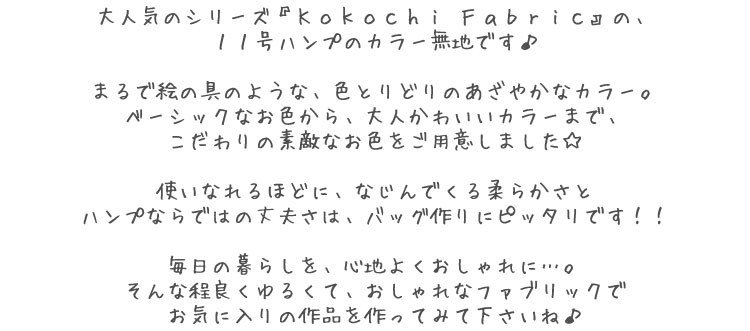 大人気のシリーズ『Ｋｏｋｏｃｈｉ Ｆａｂｒｉｃ』の、
１１号ハンプのカラー無地です♪
まるで絵の具のような、色とりどりのあざやかなカラー。
ベーシックなお色から、大人かわいいカラーまで、
こだわりの素敵なお色をご用意しました☆
使いなれるほどに、なじんでくる柔らかさと
ハンプならではの丈夫さは、バッグ作りにピッタリです！！
毎日の暮らしを、心地よくおしゃれに…。
そんな程良くゆるくて、おしゃれなファブリックで
お気に入りの作品を作ってみて下さいね♪